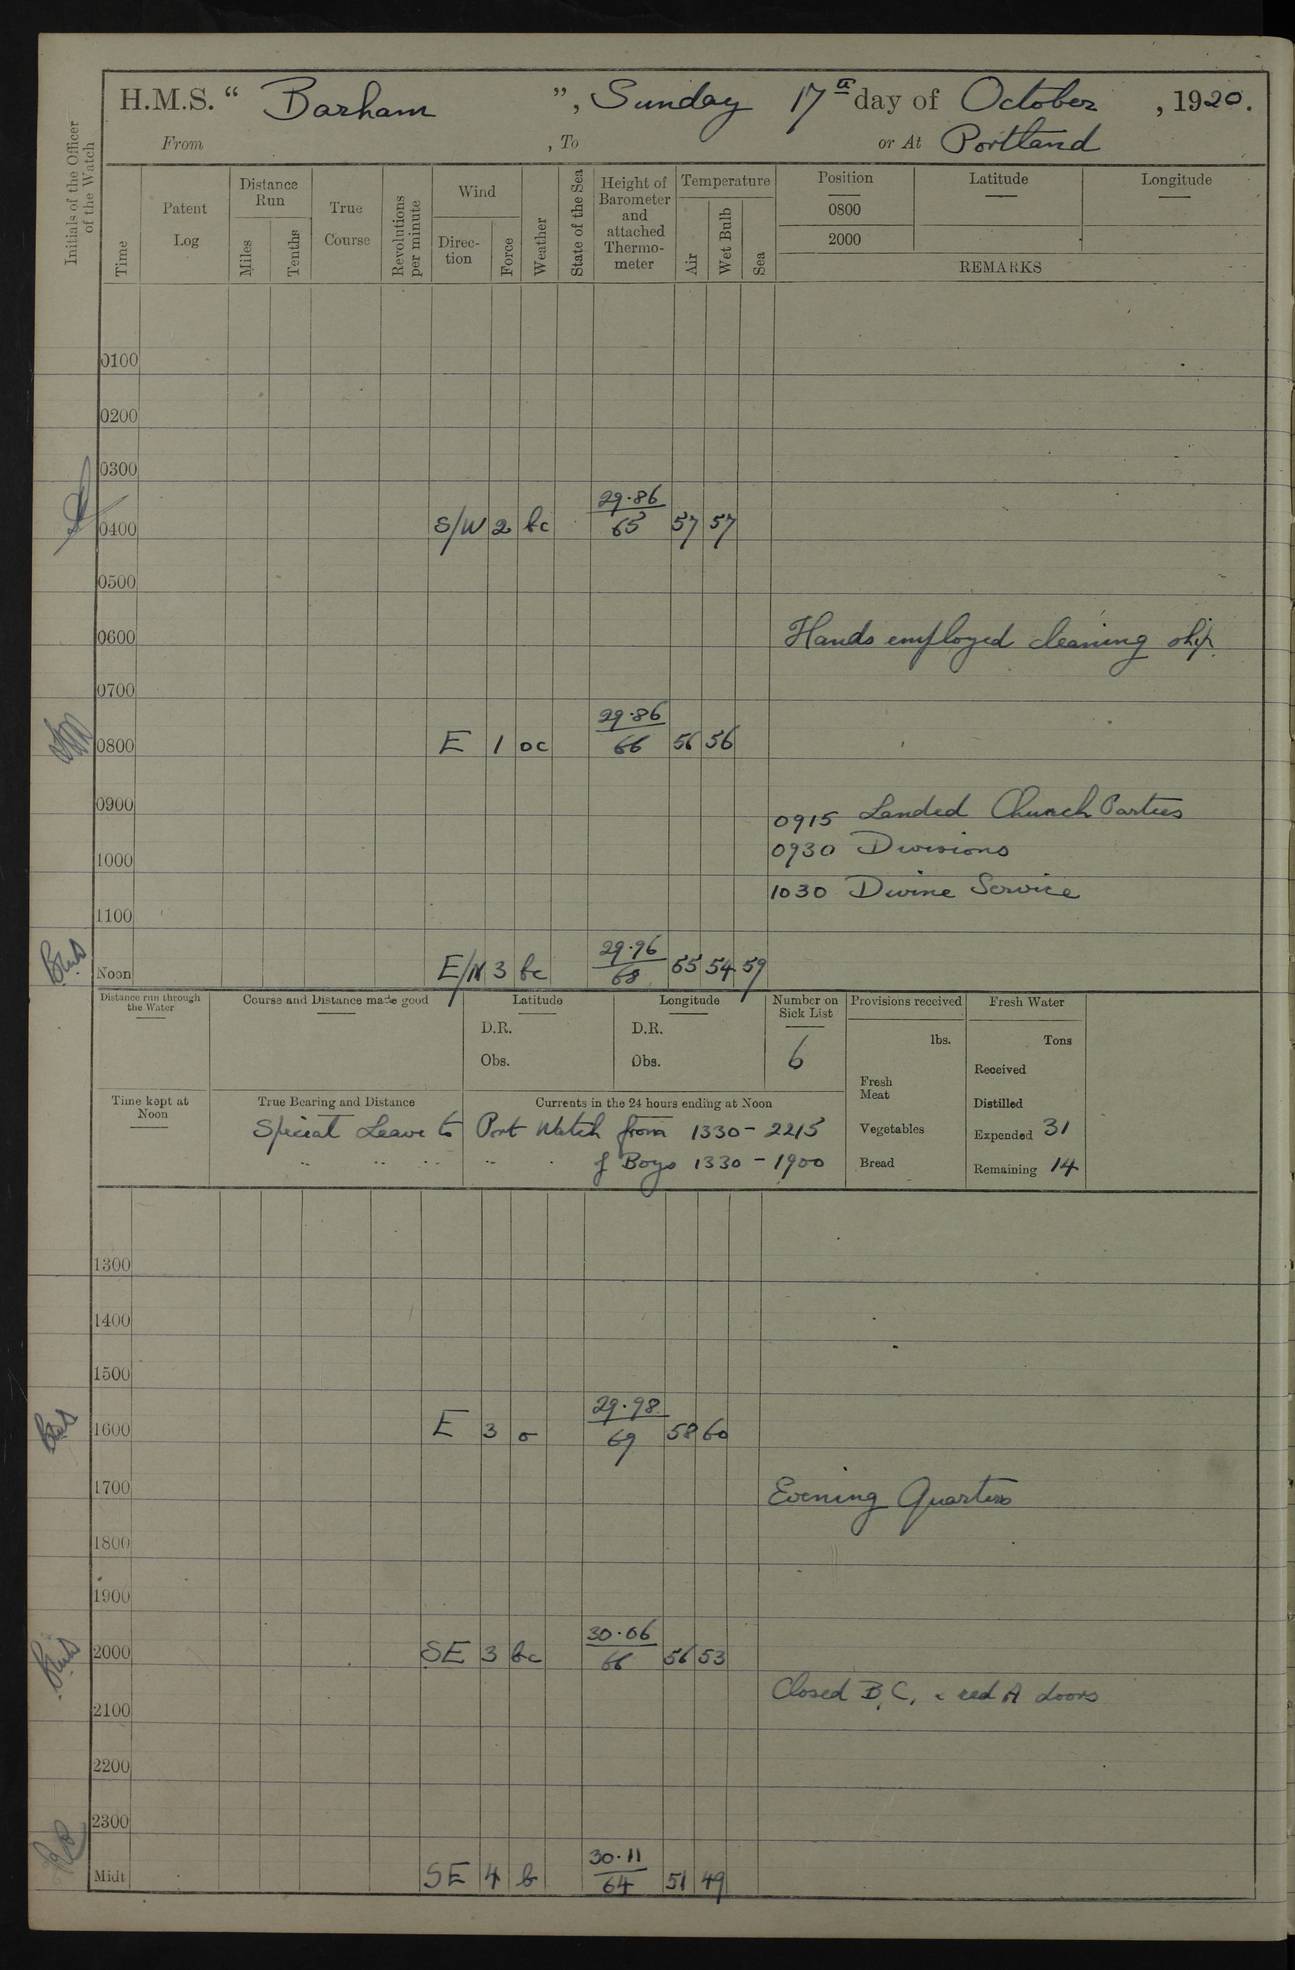 H.M.S. “ Barham ”, Sunday 17th day of October , 1920.
From , To or At Portland
Initials of the Officer of the Watch
Time
Patent Log
Distance Run
Miles
Tenths
True Course
Revolutions per minute
Wind
Direc- tion
Force
Weather
State of the Sea
Height of Barometer and attached Thermo- meter
Temperature
Air
Wet Bulb
Sea
Position Latitude Longitude
0800
2000
REMARKS
0100
0200
0300
0400 S/W 2 bc 29·86 65 57 57
0500
0600 Hands employed cleaning ship.
0700
0800 E 1 oc 29·86 66 56 56
0900
0915 Landed Church Parties
0930 Divisions
1000
1030 Divine Service
1100
Noon E/N 3 bc 29·96 68 55 54 59
Distance run through the Water
Course and Distance made good
Latitude
D.R.
Obs.
Longitude
D.R.
Obs.
Number on Sick List
6
Provisions received
lbs.
Fresh Meat
Vegetables
Bread
Fresh Water
Tons
Received
Distilled
Expended 31
Remaining 14
Time kept at Noon
True Bearing and Distance
Currents in the 24 hours ending at Noon
Special Leave to Port Watch from 1330 - 2215
" " " " " of Boys 1330 - 1900
1300
1400
1500
1600 E 3 o 29·98 69 58 60
1700 Evening Quarters
1800
1900
2000 SE 3 bc 30·06 66 56 53
Closed B, C, & red A doors
2100
2200
2300
Midt SE 4 b 30·11 64 51 49